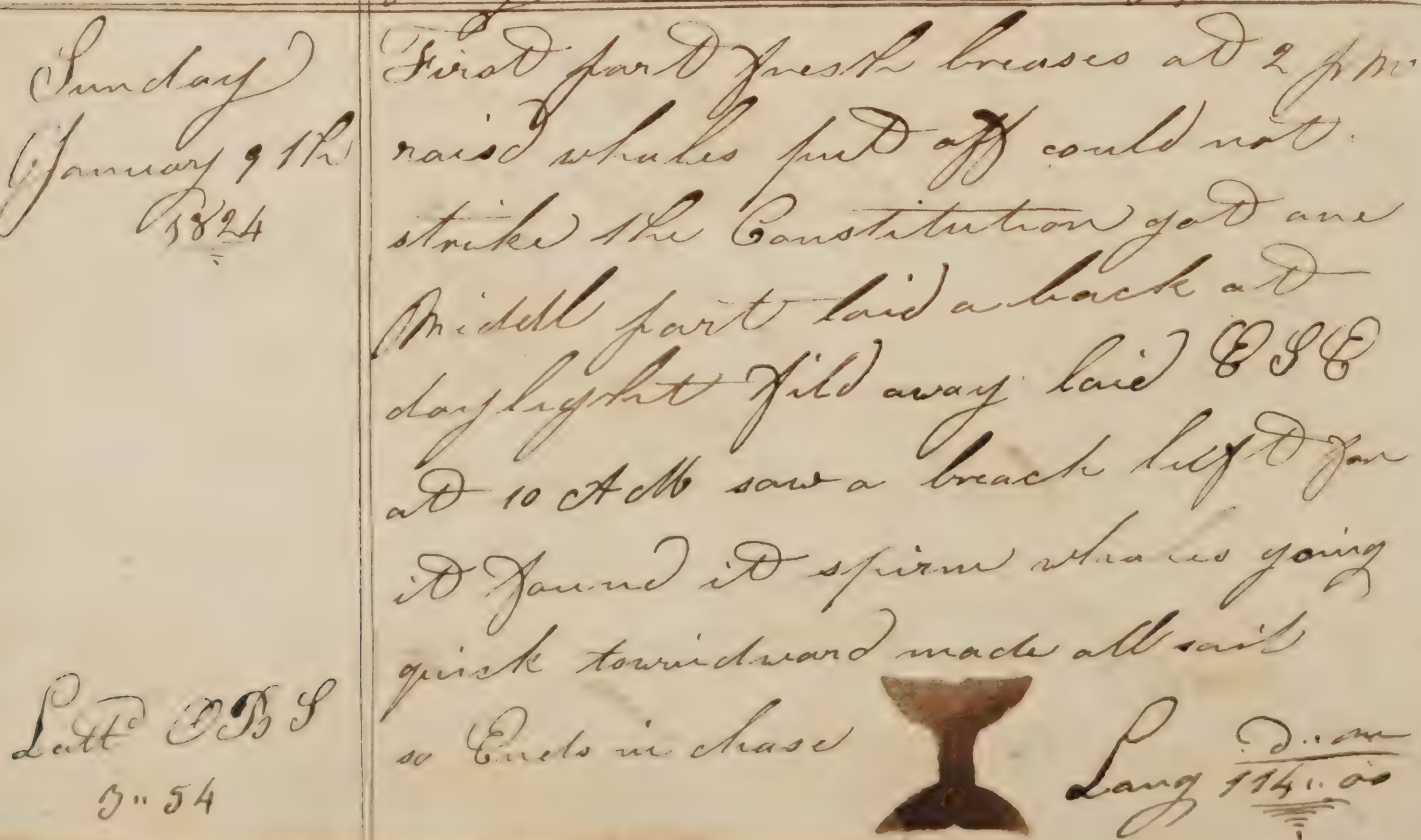 Sunday
January 9th
1824
First part fresh breases at 2 pm
raisd whales put off could not
strike the Constitution got one
Middl part laid a back at
daylight fild away laid ESE
at 10 AM saw a breach luft for
it found it spirm whales going
quick towindward made all sail
so Ends in chase
Latt^d OBS
3" 54
Long D.. m
114.. 00